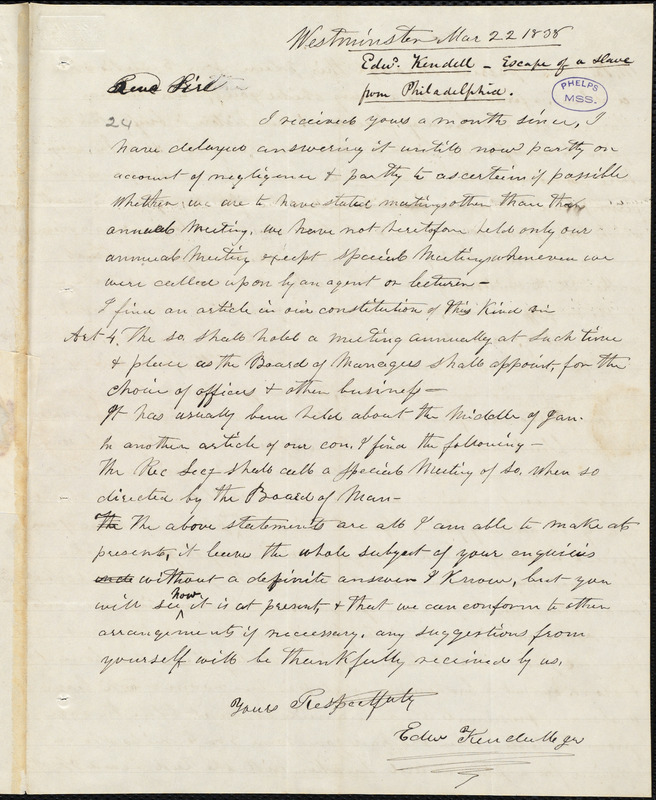 Westminster Mar 22 1838
Edw. Kendell - Escape of a slave
from Philadelphia.
PHELPS
MSS.
Sir
24 I received yours a month since, I
have delayed answering it untill now partly on
account of negligence & partly to ascertain if possible
whether we are to have stated meetings other than the
annual Meeting. we have not heretofore held only our
annual Meeting except special Meetings whenever we
were called upon by an agent or lecturer -
I find an article in our constitution of this Kind viz
Art 4. The so. shall hold a meeting annually at such time
& place as the Board of Managers shall appoint, for the
choice of officers & other business -
It has usually been held about the Middle of Jan.
In another article of our con. I find the following -
The Rec Secy shall call a special Meeting of so. when so
directed by the Board of Man-
The The above statements are all I am able to make at
present, it leaves the whole subject of your enquiries
without a definite answer I Know, but you
will see how it is at present, & that we can conform to other
arrangements if necessary. any suggestions from
yourself will be thankfully received by us.
Yours Respectfully
Edw Kendall Jr